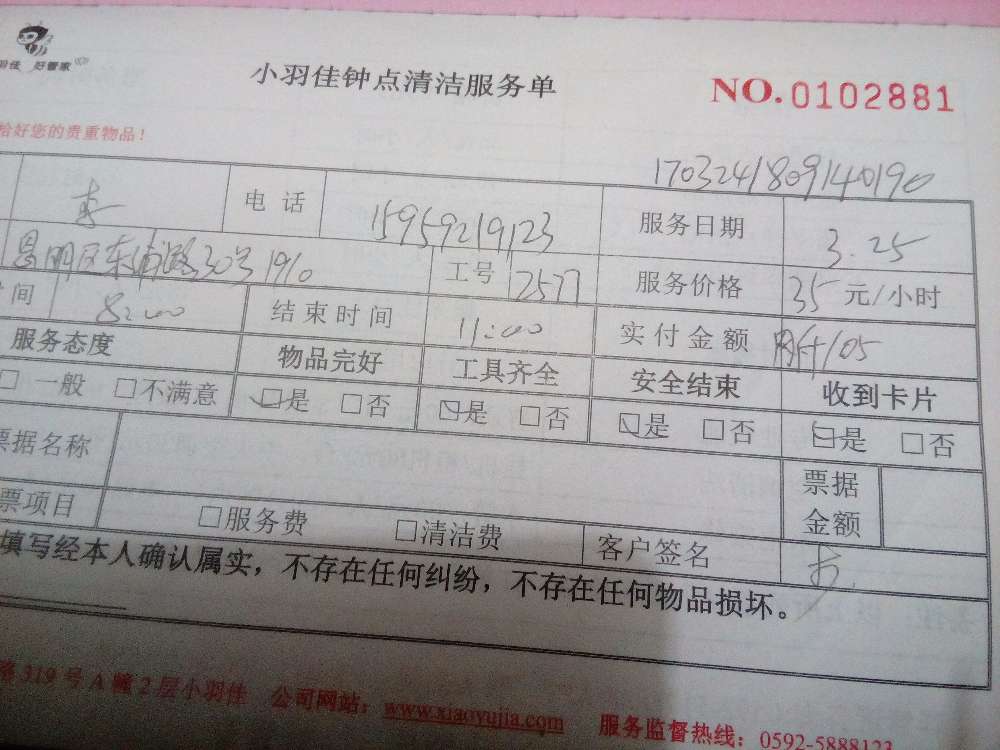 好管家
小羽佳钟点清洁服务单 NO.0102881
好您的贵重物品!
1703241809140190
电 话 15959219123 服务日期 3.25
思明区东浦路30号1910 工号 2577 服务价格 35 元/小时
间 8:00 结束时间 11:00 实付金额 105
服务态度 物品完好 工具齐全 安全结束 收到卡片
□ 一般 □不满意 ☑是 □否 ☑是 □否 ☑是 □否 ☑是 □否
票据名称 票据金额
票项目 □服务费 □清洁费 客户签名
填写经本人确认属实，不存在任何纠纷，不存在任何物品损坏。
路319号A幢2层小羽佳 公司网站：www.xiaoyujia.com 服务监督热线：0592-5888123